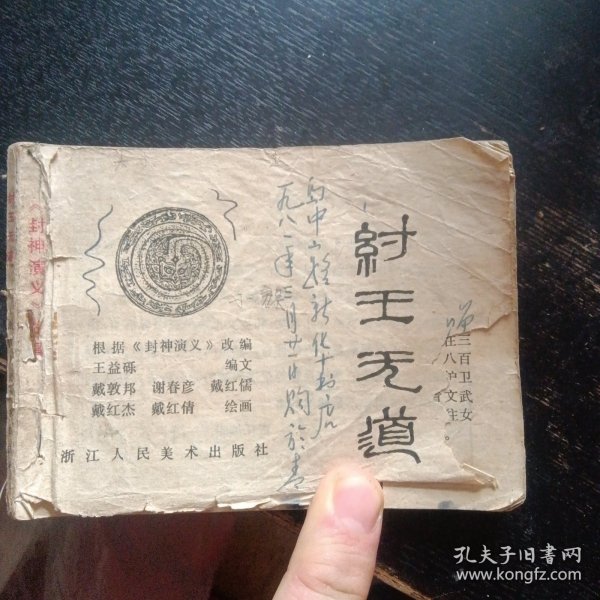 纣王无道
一九八一年三月廿一日购於青
中山路新华书店
根据《封神演义》改编
王益砾 编文
戴敦邦 谢春彦 戴红儒
戴红杰 戴红倩 绘画
浙江人民美术出版社
《封神演义》
三百卫武女
王八护文主。
孔夫子旧书网
www.kongfz.com